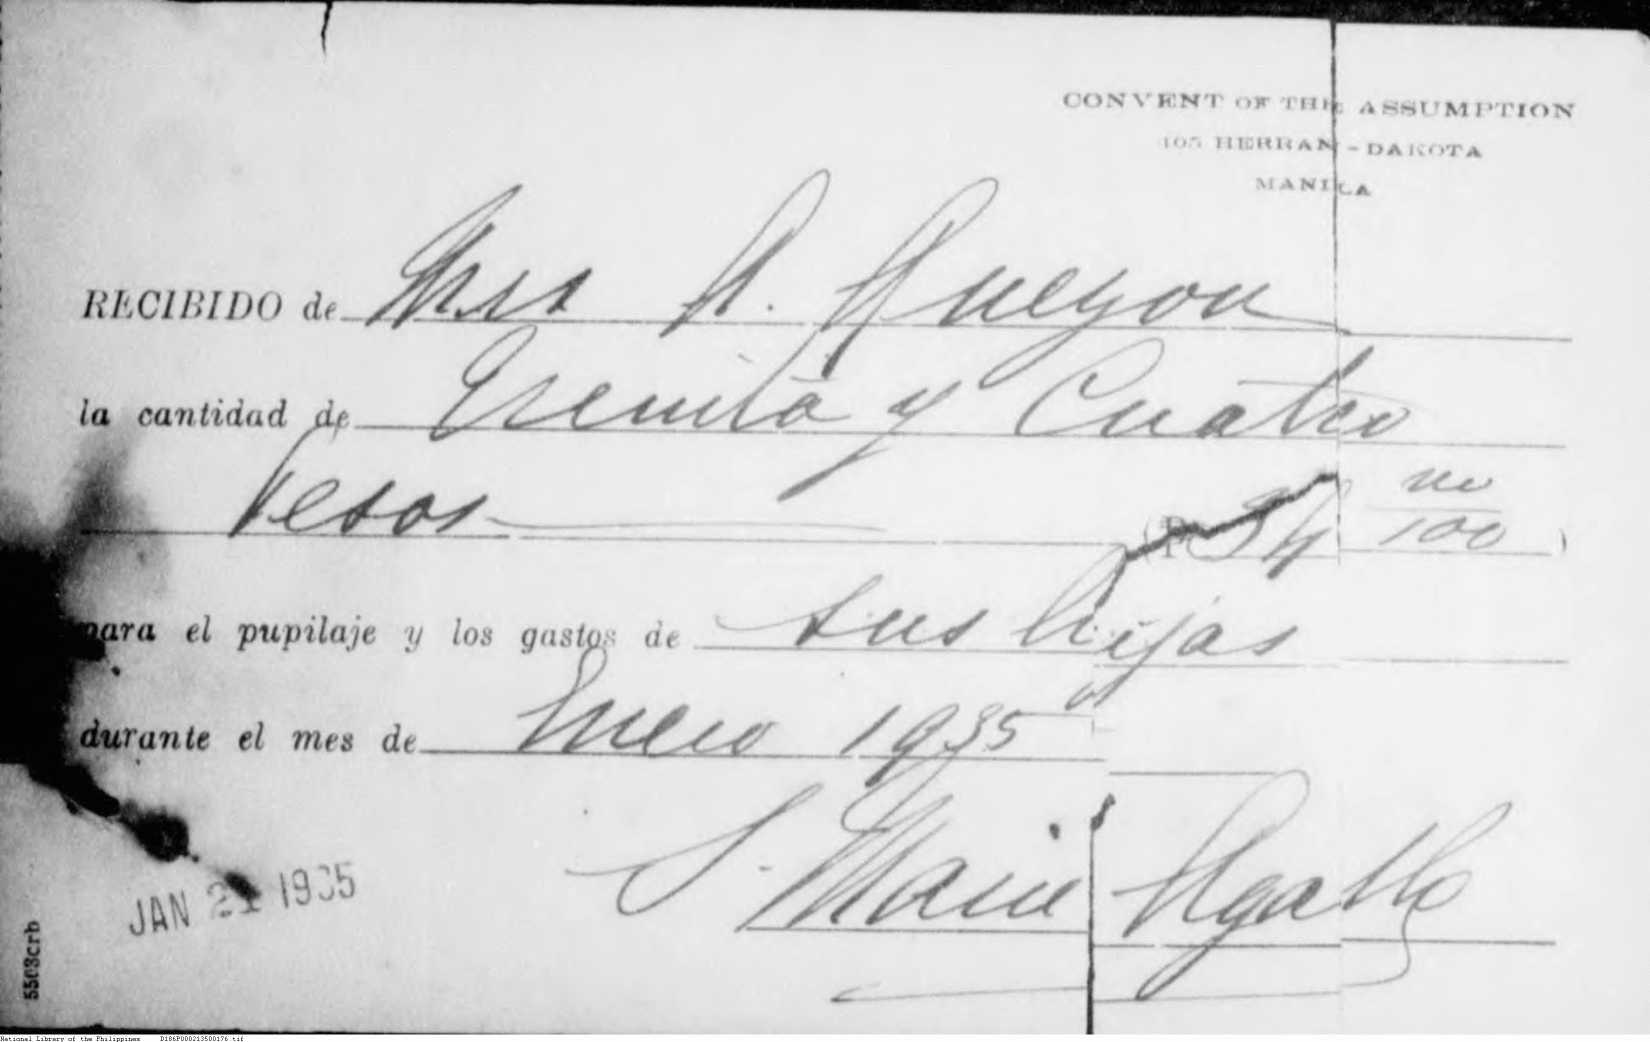 CONVENT OF THE ASSUMPTION
105 HERRAN - DAKOTA
MANILA
RECIBIDO de Mrs A. Quezon
la cantidad de Treinta y Cuatro
Pesos (P 34 no/100)
para el pupilaje y los gastos de sus hijas
durante el mes de Enero 1935
S. Marie Agathe
JAN 21 1935
5503crb
National Library of the Philippines D186P000213500176.tif